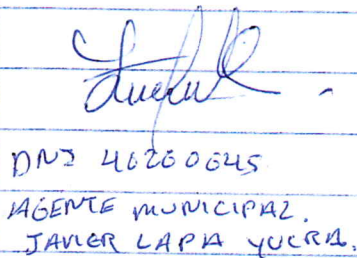 DNI 40260645
AGENTE MUNICIPAL.
JAVIER LAPA YUCRA.